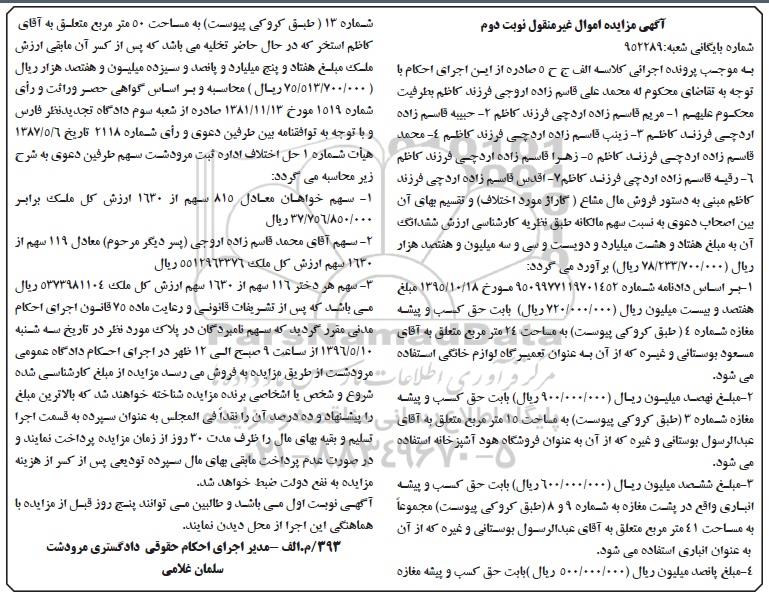 آگهی مزایده اموال غیرمنقول نوبت دوم
شماره بایگانی شعبه: ۹۵۲۲۸۹
به موجب پرونده اجرائی کلاسه الف ج ح ۵ صادره از ایـن اجرای احکام با
توجه به تقاضای محکوم له محمد علی قاسم زاده اروجی فرزند کاظم بطرفیت
محکـوم علیهـم ۱- مریم قاسـم زاده اردچی فرزند کاظم ۲- حبیبه قاسم زاده
اردچـی فرزنـد کاظـم ۳- زینب قاسـم زاده اردچـی فرزند کاظـم ۴- محمد
قاسـم زاده اردچـی فرزنـد کاظـم ۵- زهـرا قاسـم زاده اردچـی فرزند کاظم
۶- رقیـه قاسـم زاده اردچی فرزنـد کاظم۷- اقدس قاسـم زاده اردچی فرزند
کاظم مبنی به دستور فروش مال مشاع ( گاراژ مورد اختلاف) و تقسیم بهای آن
بین اصحاب دعوی به نسبت سهم مالکانه طبق نظریه کارشناسی ارزش ششدانگ
آن به مبلغ هفتاد و هشت میلیارد و دویست و سی و سه میلیون و هفتصد هزار
ریال (۷۸/۲۳۳/۷۰۰/۰۰۰ ریال) برآورد می گردد:
۱-بـر اسـاس دادنامه شـماره ۹۵۰۹۹۷۷۱۱۹۷۰۱۴۵۲ مـورخ ۱۳۹۵/۱۰/۱۸ مبلغ
هفتصد و بیست میلیون ریال (۷۲۰/۰۰۰/۰۰۰ ریال) بابت حق کسب و پیشـه
مغازه شـماره ۴ ( طبق کروکی پیوسـت) به مساحت ۲۴ متر مربع متعلق به آقای
مسعود بوستانی و غیـره که از آن بـه عنوان تعمیـرگاه لوازم خانگی اسـتفاده
می شود.
۲-مبلـغ نهصـد میلیـون ریـال (۹۰۰/۰۰۰/۰۰۰ ریال) بابت حق کسـب و پیشـه
مغازه شـماره ۳ (طبق کروکی پیوست) به مساحت ۱۵ متر مربع متعلق به آقای
عبدالرسول بوستانی و غیره که از آن به عنوان فروشگاه هود آشپزخانه استفاده
می شود.
۳-مبلـغ ششـصد میلیون ریـال (۶۰۰/۰۰۰/۰۰۰ ریال) بابت حق کسـب و پیشـه
انبـاری واقع در پشت مغازه به شـماره ۹ و ۸ (طبق کروکی پیوست) مجموعاً
به مساحت ۴۱ متر مربع متعلق به آقای عبدالرسول بوستانی و غیره که از آن
به عنوان انباری استفاده می شود.
۴-مبلغ پانصد میلیون ریال (۵۰۰/۰۰۰/۰۰۰ ریال )بابت حق کسب و پیشه مغازه
شـماره ۱۳ ( طبـق کروکی پیوسـت) به مساحت ۵۰ متر مربع متعلـق به آقای
کاظم استخر که در حال حاضر تخلیه می باشد که پس از کسر آن مابقی ارزش
ملـک مبلـغ هفتاد و پنج میلیارد و پانصد و سیزده میلیـون و هفتصد هزار ریال
(۷۵/۵۱۳/۷۰۰/۰۰۰ ریـال ) محاسـبه و بـر اسـاس گواهی حصـر وراثت و رأی
شماره ۱۵۱۹ مورخ ۱۳۸۱/۱۱/۱۳ صادره از شعبه سوم دادگاه تجدیدنظر فارس
و بـا توجه به توافقنامه بین طرفین دعوی و رأی شـماره ۲۱۱۸ تاریخ ۱۳۸۷/۵/۶
هیأت شـماره ۱ حل اختلاف اداره ثبت مرودشـت سـهم طرفین دعوی به شرح
زیر محاسبه می گردد:
۱- سـهم خواهـان معـادل ۸۱۵ سـهم از ۱۶۳۰ ارزش کل ملـک برابـر
۳۷/۷۵۶/۸۵۰/۰۰۰ریال
۲- سـهم آقای محمد قاسم زاده اروجی (پسر دیگر مرحوم) معادل ۱۱۹ سهم از
۱۶۳۰ سهم ارزش کل ملک ۵۵۱۲۹۶۳۳۷۶ ریال
۳- سهم هر دختر ۱۱۶ سهم از ۱۶۳۰ سهم ارزش کل ملک ۵۳۷۳۹۸۱۱۰۴ ریال
مـی باشـد که پس از تشـریفات قانونـی و رعایت ماده ۷۵ قانـون اجرای احکام
مدنی مقرر گردید که سـهم نامبردگان در پلاک مورد نظر در تاریخ سـه شـنبه
۱۳۹۶/۵/۱۰ از ساعت ۹ صبـح الـی ۱۲ ظهر در اجرای احـکام دادگاه عمومی
مرودشـت از طریق مزایده به فروش می رسـد مزایده از مبلغ کارشناسـی شده
شروع و شخص یا اشخاصی برنده مزایده شناخته خواهند شد که بالاترین مبلغ
را پیشـنهاد و ده درصد آن را نقداً فی المجلس به عنوان سـپرده به قسمت اجرا
تسلیم و بقیه بهای مال را ظرف مدت ۳۰ روز از زمان مزایده پرداخت نمایند و
در صورت عدم پرداخت مابقی بهای مال سـپرده تودیعی پس از کسر از هزینه
مزایده به نفع دولت ضبط خواهد شد.
آگهی نوبت اول مـی باشـد و طالبین مـی توانند پنـج روز قبـل از مزایده با
هماهنگی این اجرا از محل دیدن نمایند.
۳۹۳/م.الف –مدیر اجرای احکام حقوقی دادگستری مرودشت
سلمان غلامی
ParsNamadData
۰۲۱-۸۸۳۴۹۶۷۰-۵